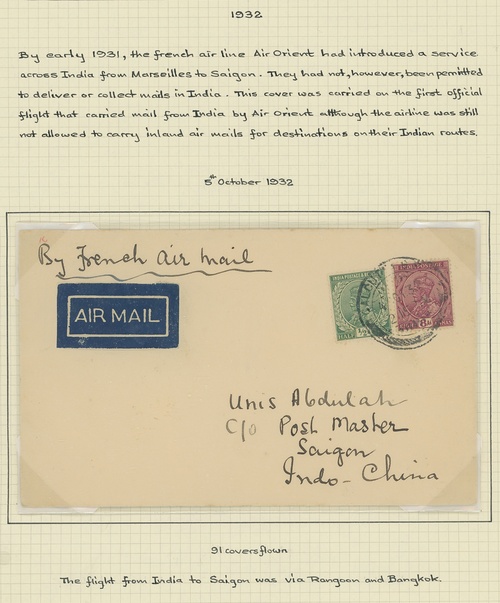 1932
By early 1931, the french air line Air Orient had introduced a service
across India from Marseilles to Saigon. They had not, however, been permitted
to deliver or collect mails in India. This cover was carried on the first official
flight that carried mail from India by Air Orient although the airline was still
not allowed to carry inland air mails for destinations on their Indian routes.
5th October 1932
By French Air Mail
AIR MAIL
Unis Abdulah
C/o Post Master
Saigon
Indo-China
91 covers flown
The flight from India to Saigon was via Rangoon and Bangkok.